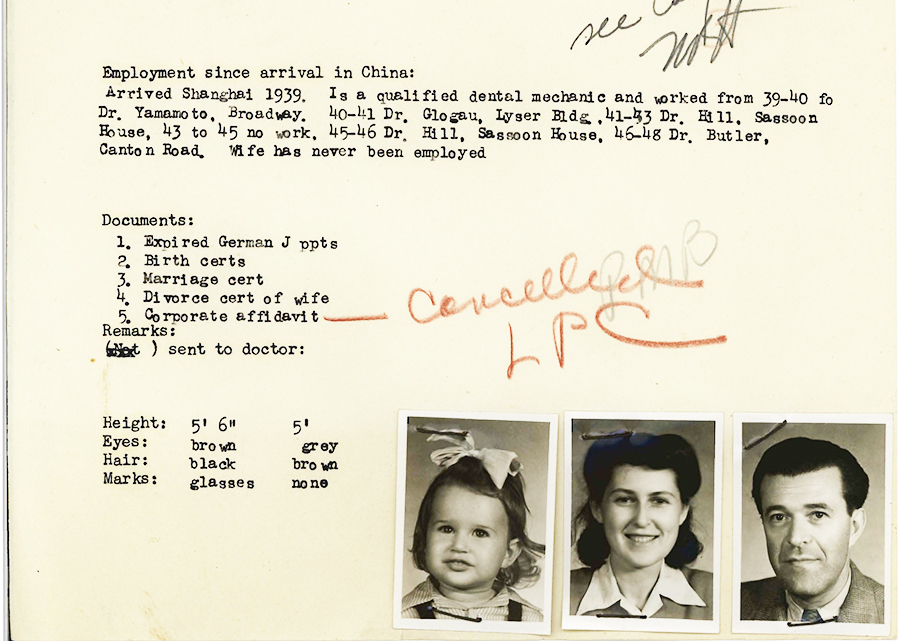 see
Employment since arrival in China:
Arrived Shanghai 1939. Is a qualified dental mechanic and worked from 39-40 fo
Dr. Yamamoto, Broadway. 40-41 Dr. Glogau, Lyser Bldg ,41-43 Dr. Hill, Sassoon
House, 43 to 45 no work. 45-46 Dr. Hill, Sassoon House, 46-48 Dr. Butler,
Canton Road. Wife has never been employed
Documents:
1. Expired German J ppts
2. Birth certs
3. Marriage cert
4. Divorce cert of wife
5. Corporate affidavit — Cancelled
LPC
Remarks:
(Not ) sent to doctor:
Height: 5' 6" 5'
Eyes: brown grey
Hair: black brown
Marks: glasses none